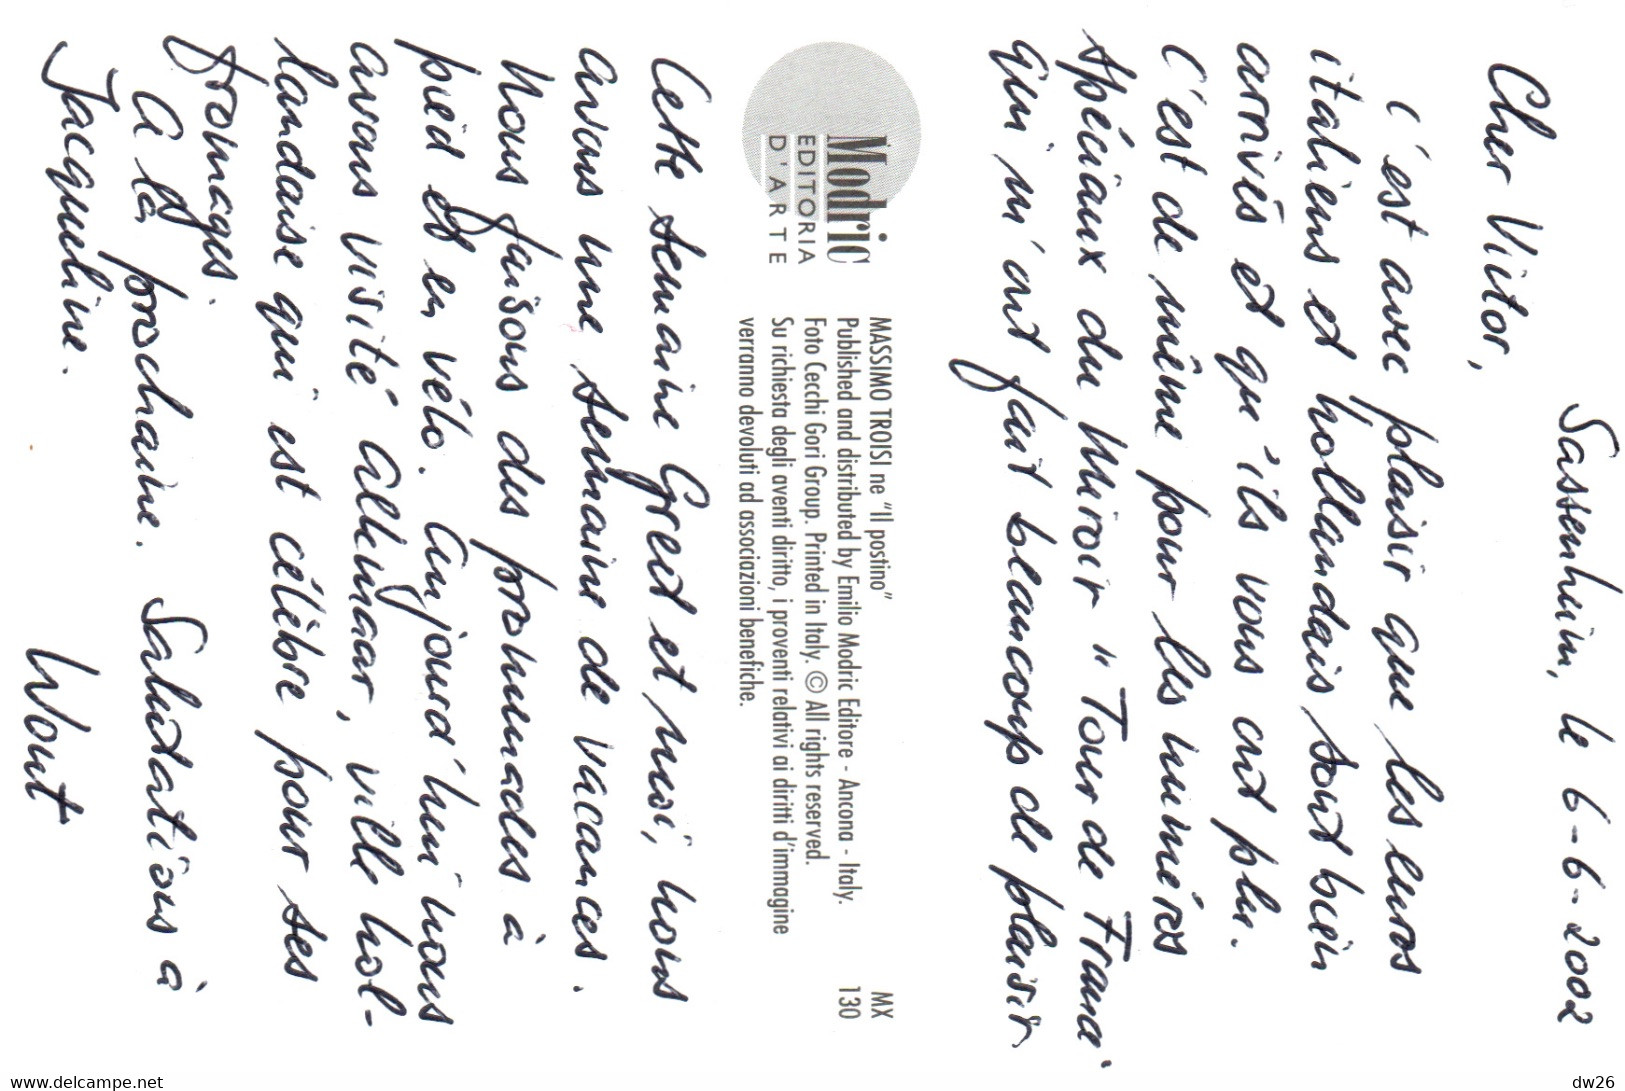 Sassenheim, le 6-6-2002
Cher Victor,
C'est avec plaisir que les euros
italiens et hollandais sont bien
arrivés et qu'ils vous ont plu.
C'est de même pour les numéros
spéciaux du Miroir "Tour de France"
qui m'ont fait beaucoup de plaisir
Modric
EDITORIA
D'ARTE
MASSIMO TROISI ne "Il postino"
MX
Published and distributed by Emilio Modric Editore - Ancona - Italy.
130
Foto Cecchi Gori Group. Printed in Italy. © All rights reserved.
Su richiesta degli aventi diritto, i proventi relativi ai diritti d'immagine
verranno devoluti ad associazioni benefiche.
Cette semaine Greet et moi, nous
avons une semaine de vacances.
Nous faisons des promenades à
pied et en vélo. Aujourd'hui nous
avons visité Alkmaar, ville hol-
landaise qui est célèbre pour ses
fromages.
A la prochaine. Salutations à
Jacqueline.
Wout
www.delcampe.net
dw26